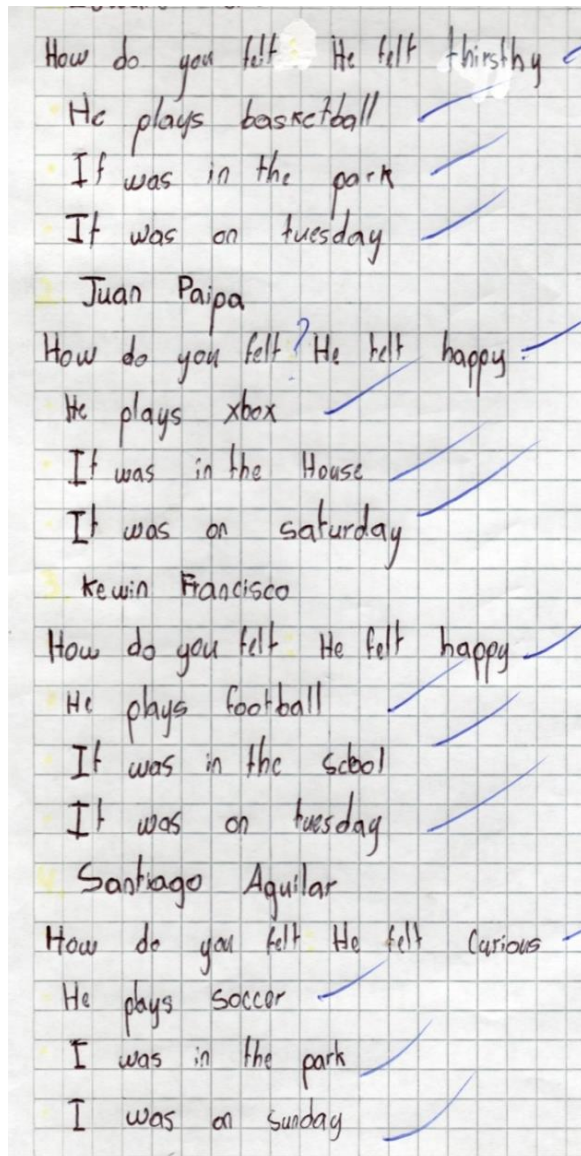 How do you felt: He felt thirsthy
· He plays basketball
· It was in the park
· It was on tuesday
2. Juan Paipa
How do you felt:? He felt happy
· He plays xbox
· It was in the House
· It was on saturday
3. Kewin Francisco
How do you felt: He felt happy
· He plays football
· It was in the scbol
· It was on tuesday
4. Santiago Aguilar
How do you felt: He felt Curious
· He plays soccer
· I was in the park
· I was on sunday